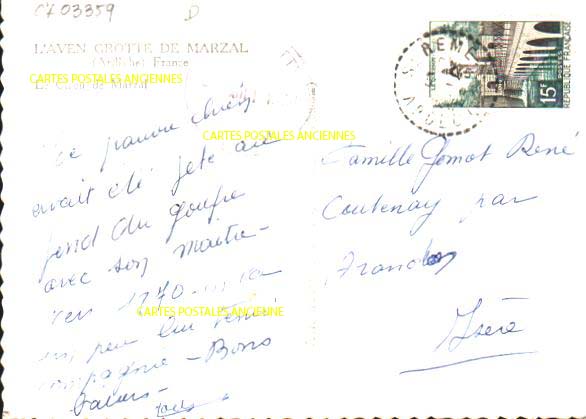 C703359
D
L'AVEN GROTTE DE MARZAL
(Ardèche) France
Le Chien de Marzal
CARTES POSTALES ANCIENNES
CARTES POSTALES ANCIENNES
CARTES POSTALES ANCIENNE
Ce pauvre chien
avait été jeté au
fond du gouffre
avec son maître
vers 1770
un peu lui tenir
compagnie - Bons
Baisers -
Famille Jomot René
Coutenay par
Isère
REPUBLIQUE FRANÇAISE
15F
ARDECHE